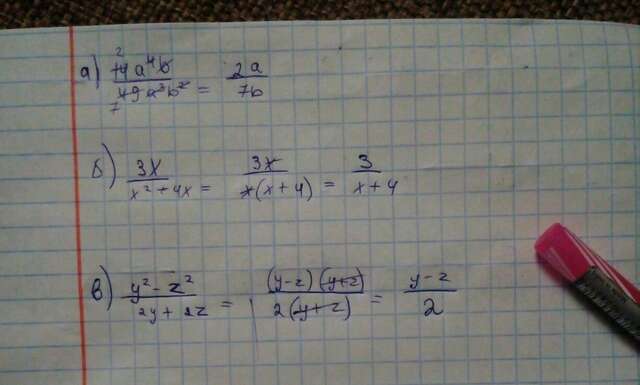 а) 14a⁴b / 49a³b² = 2a / 7b
б) 3x / x² + 4x = 3x / x(x + 4) = 3 / x + 4
в) y² - z² / 2y + 2z = (y - z)(y + z) / 2(y + z) = y - z / 2